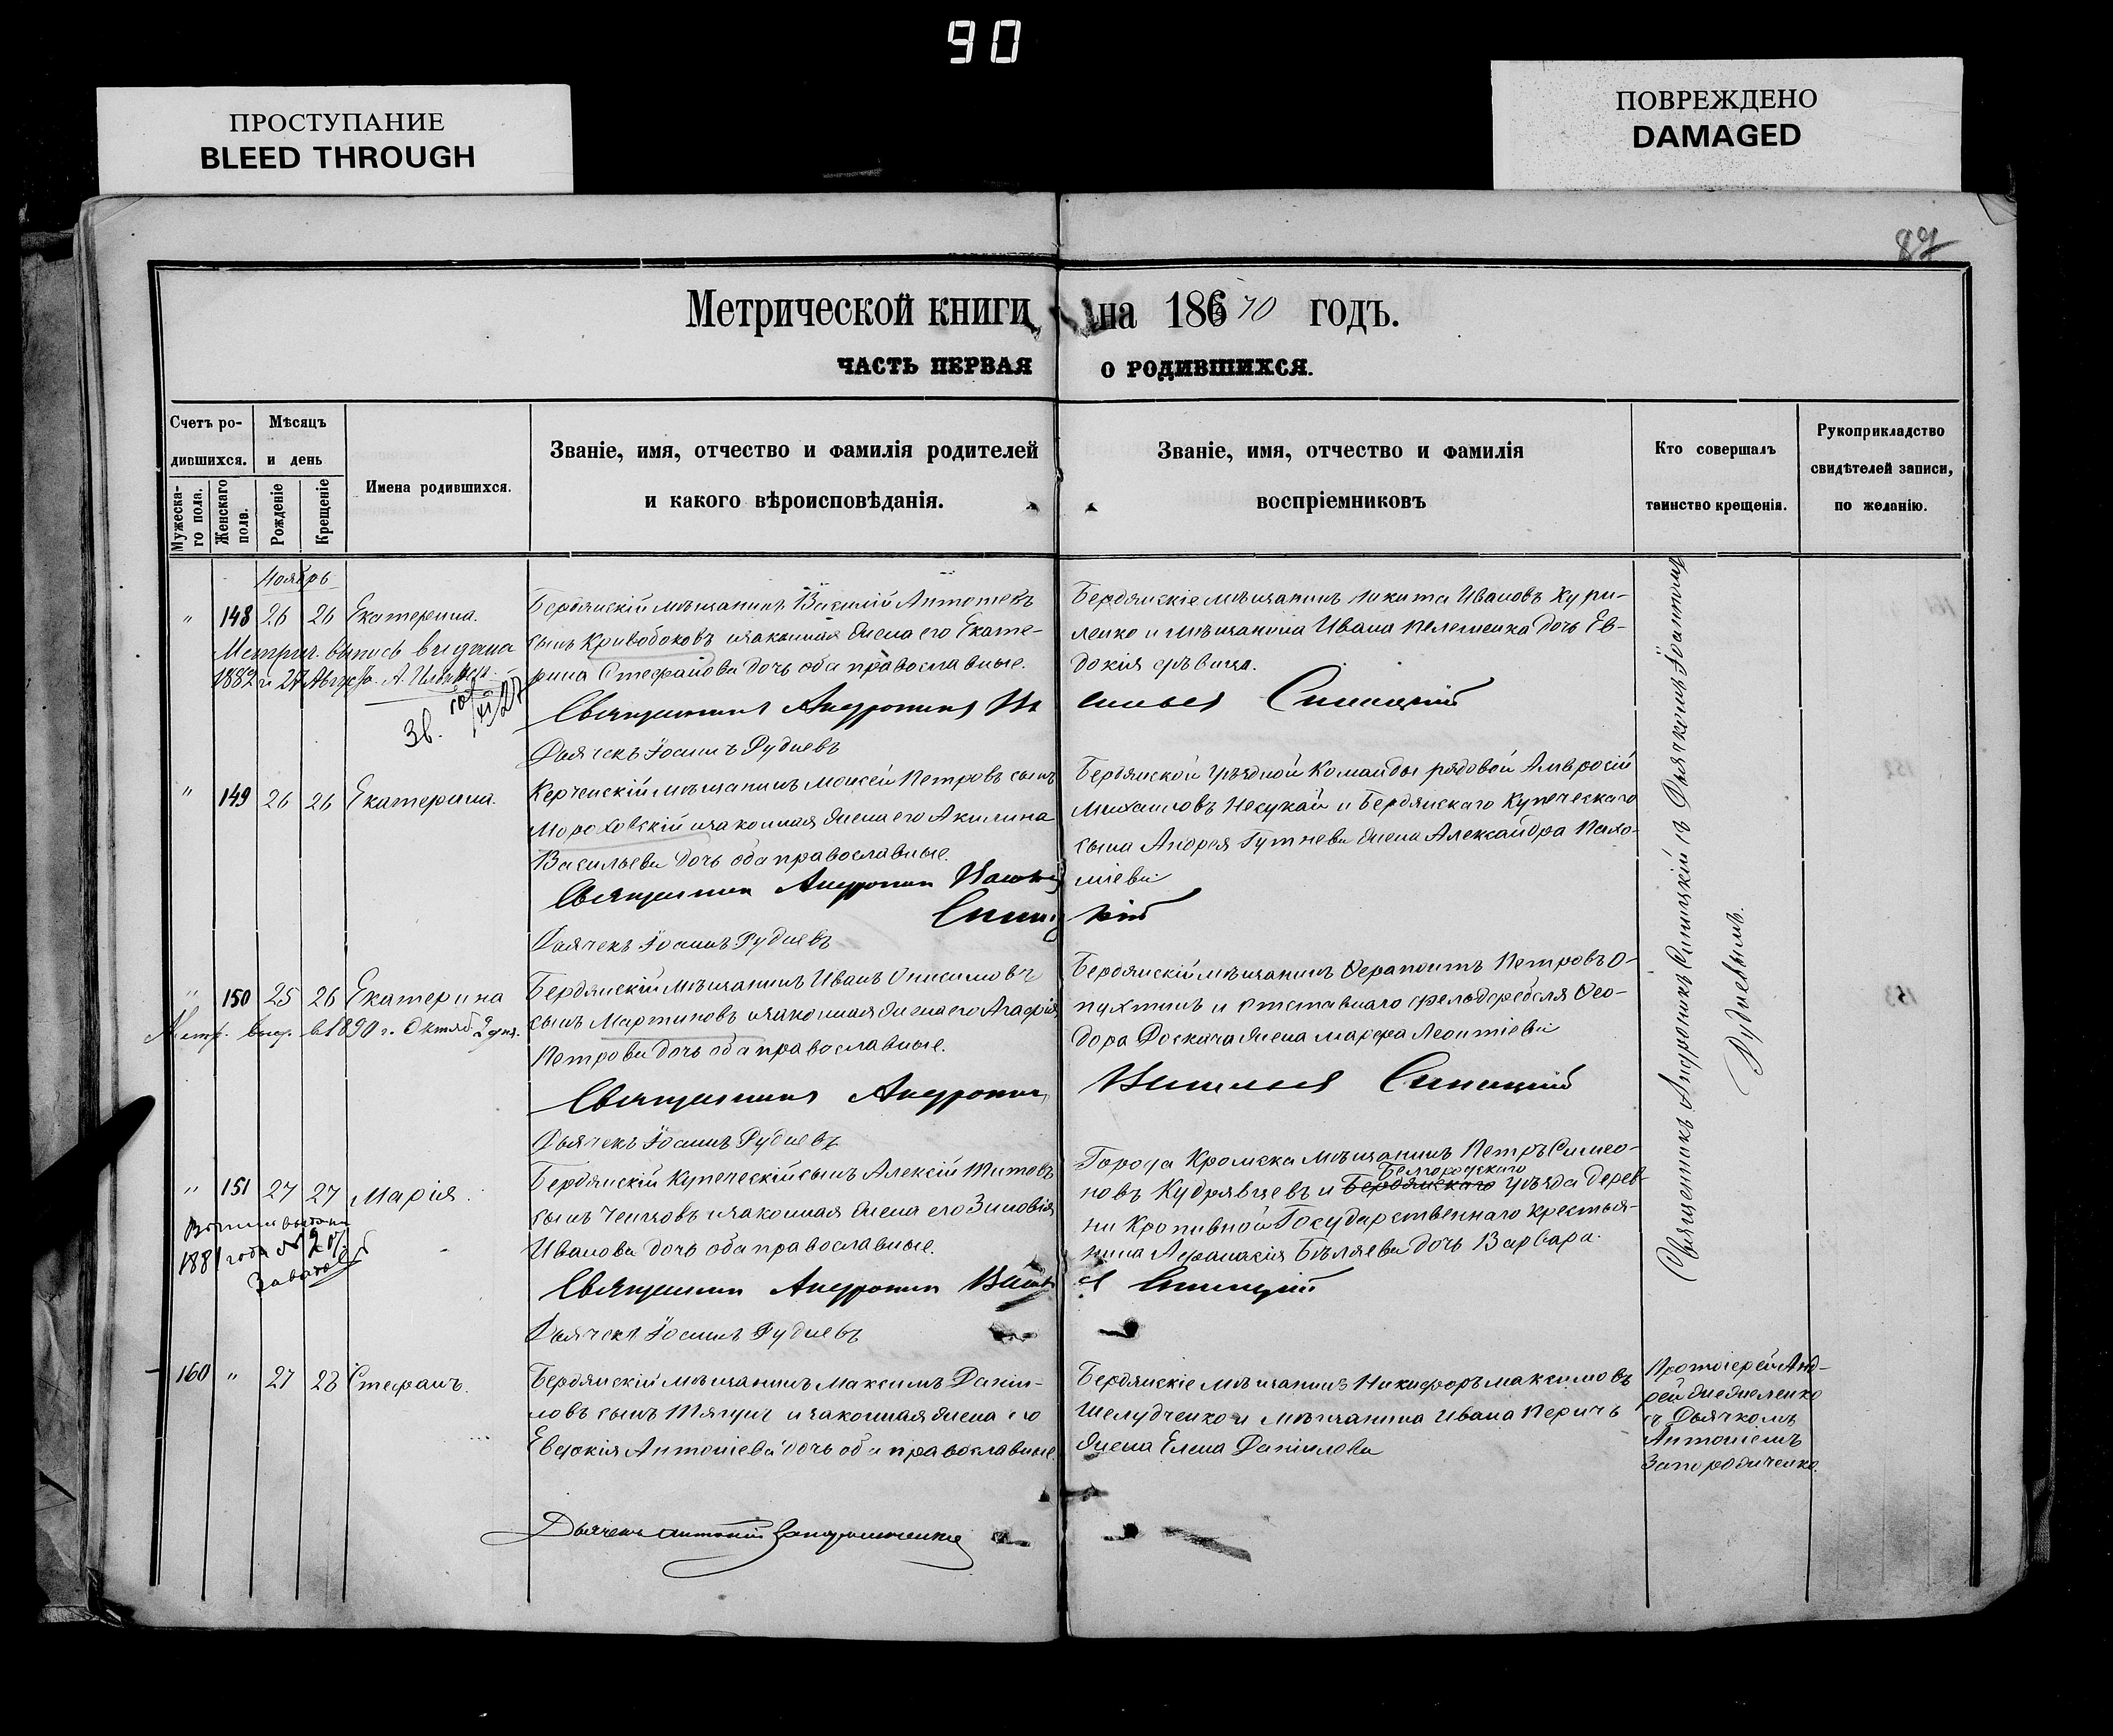 90
ПРОСТУПАНИЕ
BLEED THROUGH
ПОВРЕЖДЕНО
DAMAGED
87
Метрической книги на 18670 годъ.
ЧАСТЬ ПЕРВАЯ О РОДИВШИХСЯ.
Счетъ ро-
дившихся.
Мужеска-
го пола.
Женскаго
пола.
Мѣсяцъ
и день
Рожденіе
Крещеніе
Имена родившихся.
Званіе, имя, отчество и фамилія родителей
и какого вѣроисповѣданія.
Званіе, имя, отчество и фамилія
воспріемниковъ
Кто совершалъ
таинство крещенія.
Рукоприкладство
свидѣтелей записи,
по желанію.
Ноябрь
" 148 26 26 Екатерина.
Метрич. выпись выдана
1882 г. 27 Августа.
Зв.
Бердянскій мѣщанинъ Василій Антоніевъ
сынъ Кривобоковъ и законная жена его Екате-
рина Стефанова дочь оба православные.
Священникъ Андроникъ Синицкій
Дьячекъ Іоаннъ Рудневъ
Бердянскіе мѣщанинъ Никита Ивановъ Кури-
ленко и мѣщанина Ивана Пелешенка дочь Ев-
докія дѣвица.
" 149 26 26 Екатерина.
Керченскій мѣщанинъ Моисей Петровъ сынъ
Мороховскій и законная жена его Акилина
Васильева дочь оба православные.
Священникъ Андроникъ
Синицкій
Дьячекъ Іоаннъ Рудневъ
Бердянской уѣздной Команды рядовой Амвросій
Михаиловъ Несукай и Бердянскаго Купеческаго
сына Андрея Гутнева жена Александра Пахо-
міева
" 150 25 26 Екатерина
Метр. выд. в 1890 г. Октяб. 2 дня.
Бердянскій мѣщанинъ Иванъ Онисимовъ
сынъ Мартиновъ и законная жена его Агафія
Петрова дочь оба православные.
Священникъ Андроникъ Синицкій
Дьячекъ Іоаннъ Рудневъ
Бердянскій мѣщанинъ Ѳерапонтъ Петровъ О-
пухтинъ и отставнаго фельдфебеля Ѳео-
дора Доскича жена Марфа Леонтіева
" 151 27 27 Марія.
1881 года № 207
Бердянскій Купеческій сынъ Алексій Титовъ
сынъ Ченцовъ и законная жена его Зиновія
Иванова дочь оба православные.
Священникъ Андроникъ Синицкій
Дьячекъ Іоаннъ Рудневъ
Города Кромска мѣщанинъ Петръ Симео-
новъ Кудрявцевъ и Бердянскаго Белгородскаго уѣзда дерев-
ни Кропивной Государственнаго крестья-
нина Афанасія Бѣляева дочь Варвара.
Священникъ Андроникъ Синицкій съ Дьячкомъ Іоанномъ
Рудневымъ.
160 " 27 28 Стефанъ.
Бердянскій мѣщанинъ Максимъ Даніи-
ловъ сынъ Тягун и законная жена его
Евдокія Антоніева дочь оба православные.
Дьячекъ Антоній
Бердянскіе мѣщанинъ Никифоръ Максимовъ
Шелудченко и мѣщанина Ивана Перичъ
жена Елена Даніилова
Протоіерей Анд-
рей
съ Дьячкомъ
Антоніемъ